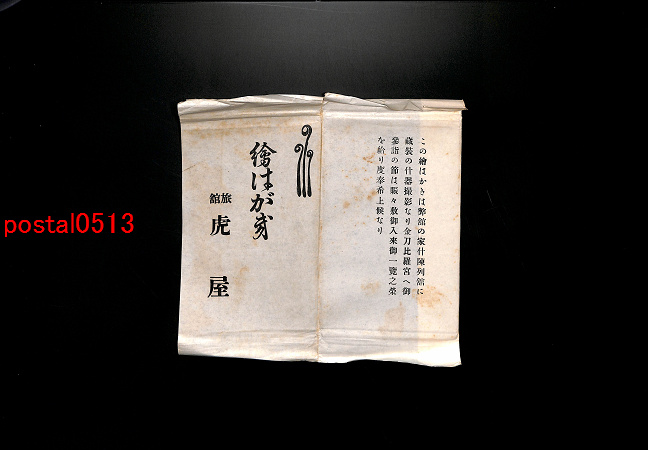 この繪はかきは弊舘の家什陳列舘に
蔵裝の什器撮影なり金刀比羅宮へ御
參詣の節は賑々敷御入來御一覽之榮
を給り度奉希上候なり
繪はがき
旅舘
虎屋
postal0513